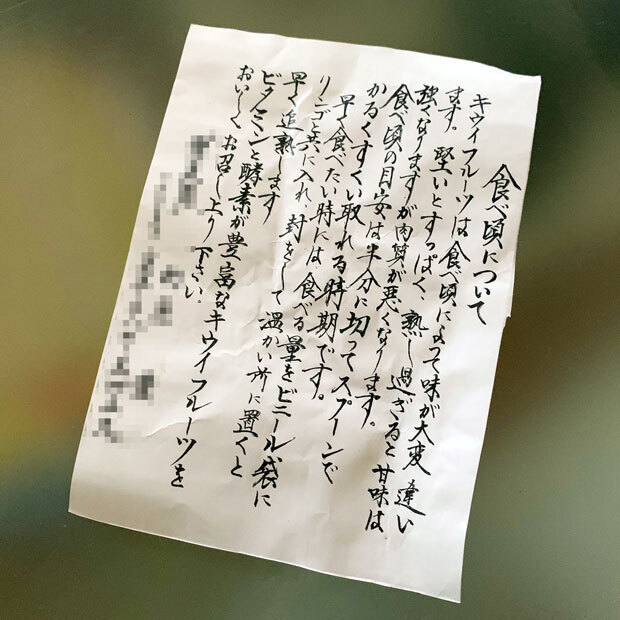 食べ頃について
キウイフルーツは食べ頃によって味が大変違い
ます。堅いとすっぱく、熟し過ぎると甘味は
強くなりますが肉質が悪くなります。
食べ頃の目安は半分に切ってスプーンで
かるくすくい取れる時期です。
早く食べたい時には、食べる量をビニール袋に
リンゴと共に入れ、封をして温かい所に置くと
早く追熟します
ビタミンと酵素が豊富なキウイフルーツを
おいしくお召し上り下さい。